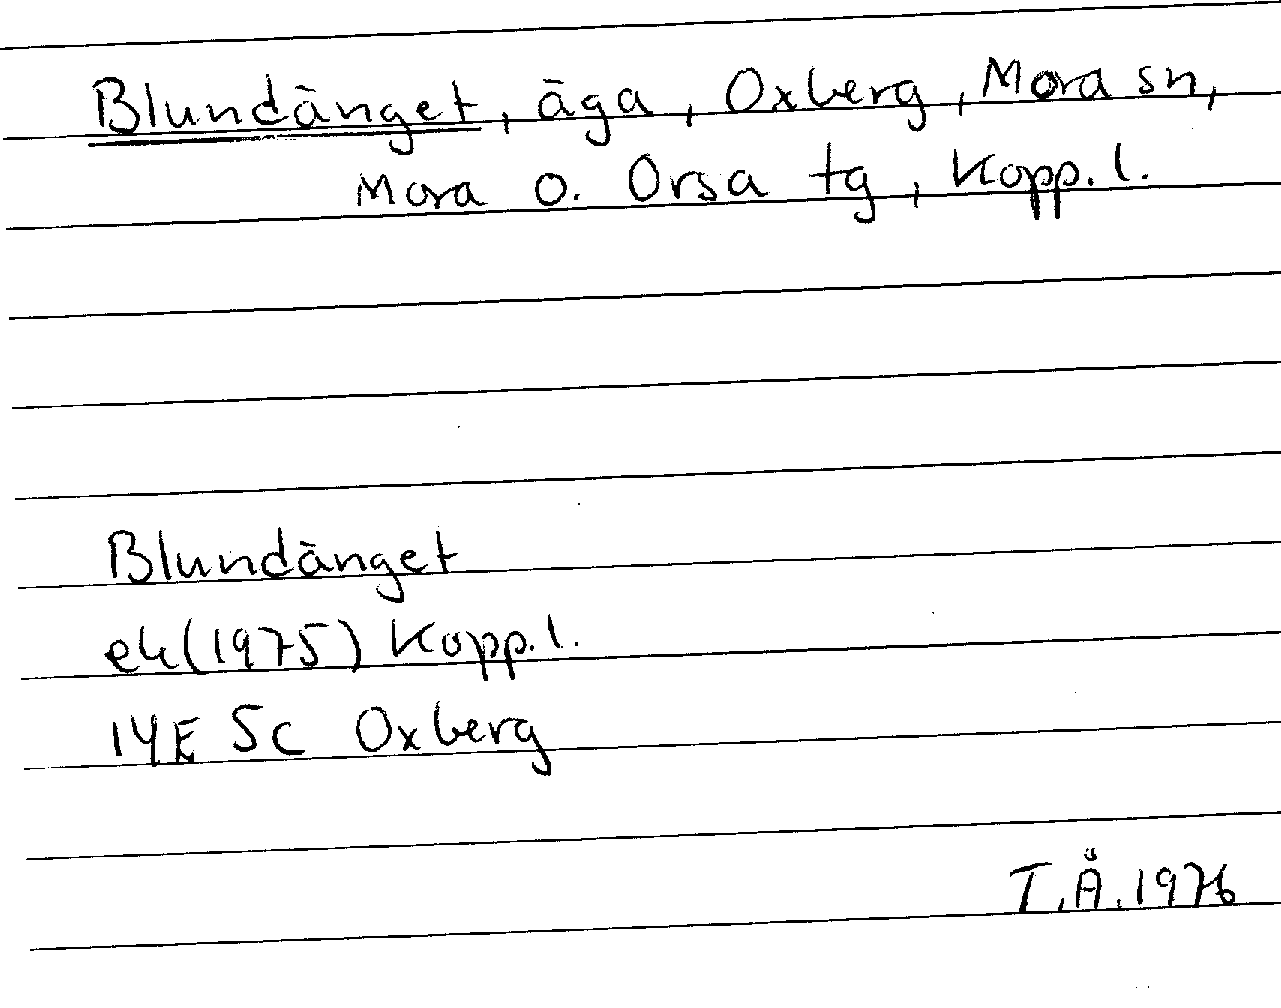 Blundänget, äga, Oxberg, Mora sn,
Mora o. Orsa tg, Kopp. l.
Blundänget
ek (1975) Kopp. l.
14E 5c Oxberg
T.Å. 1976